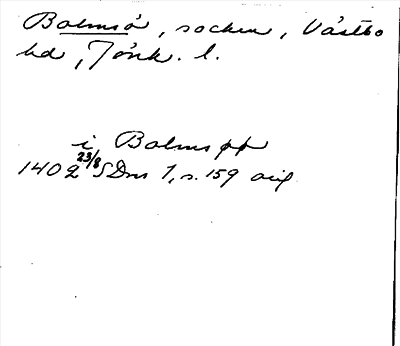 Bolmsö, socken, Västbo
hd, Jönk. l.
i Bolmsøø
1402 23/8 SDns 1, s. 159 orig.